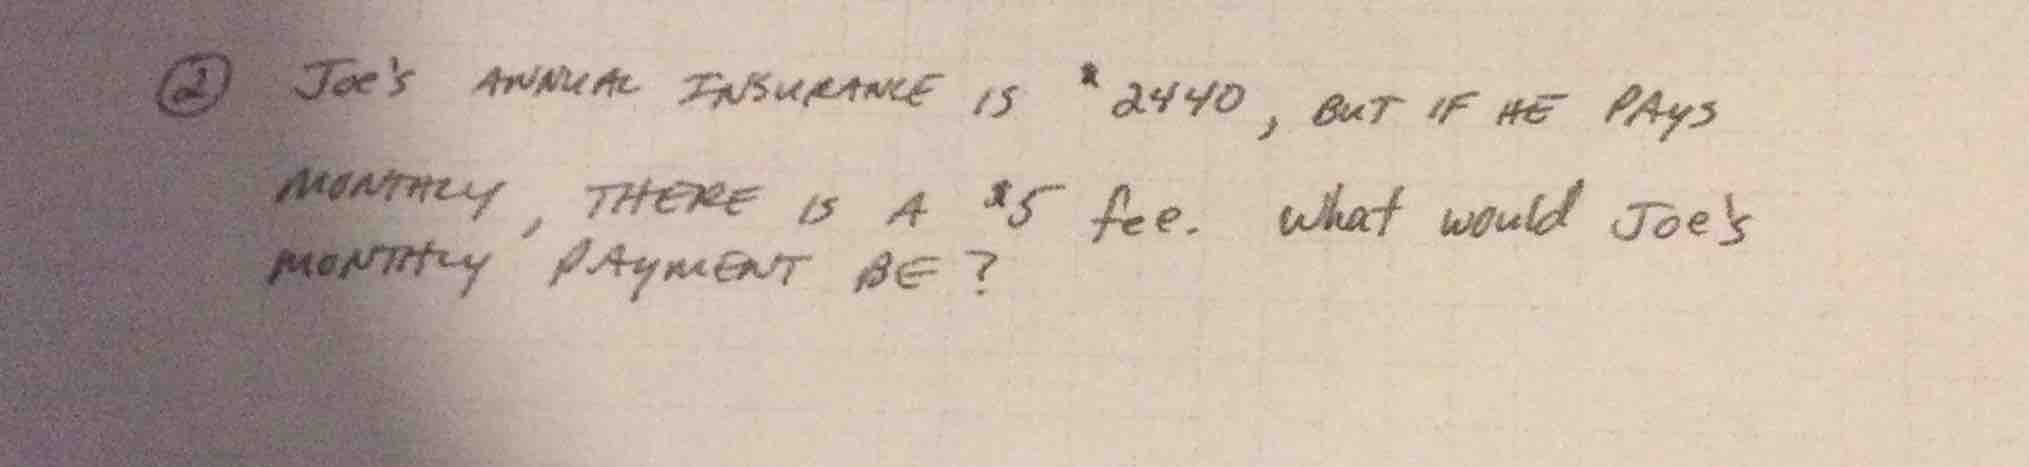 ② Joe's ANNUAL INSURANCE IS $2440, BUT IF HE PAYS
MONTHLY, THERE IS A $5 fee. What would Joe's
MONTHLY PAYMENT BE?